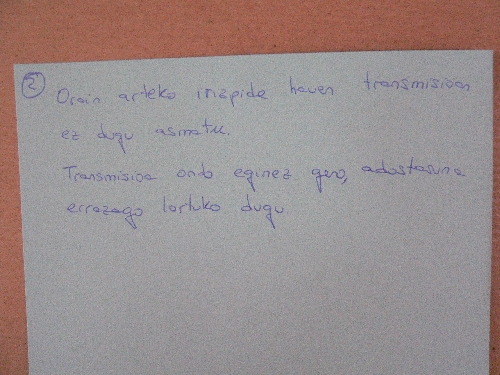 2
Orain arteko irizpide hauen transmisioan
ez dugu asmatu.
Transmisioa ondo eginez gero, adostasuna
errazago lortuko dugu.